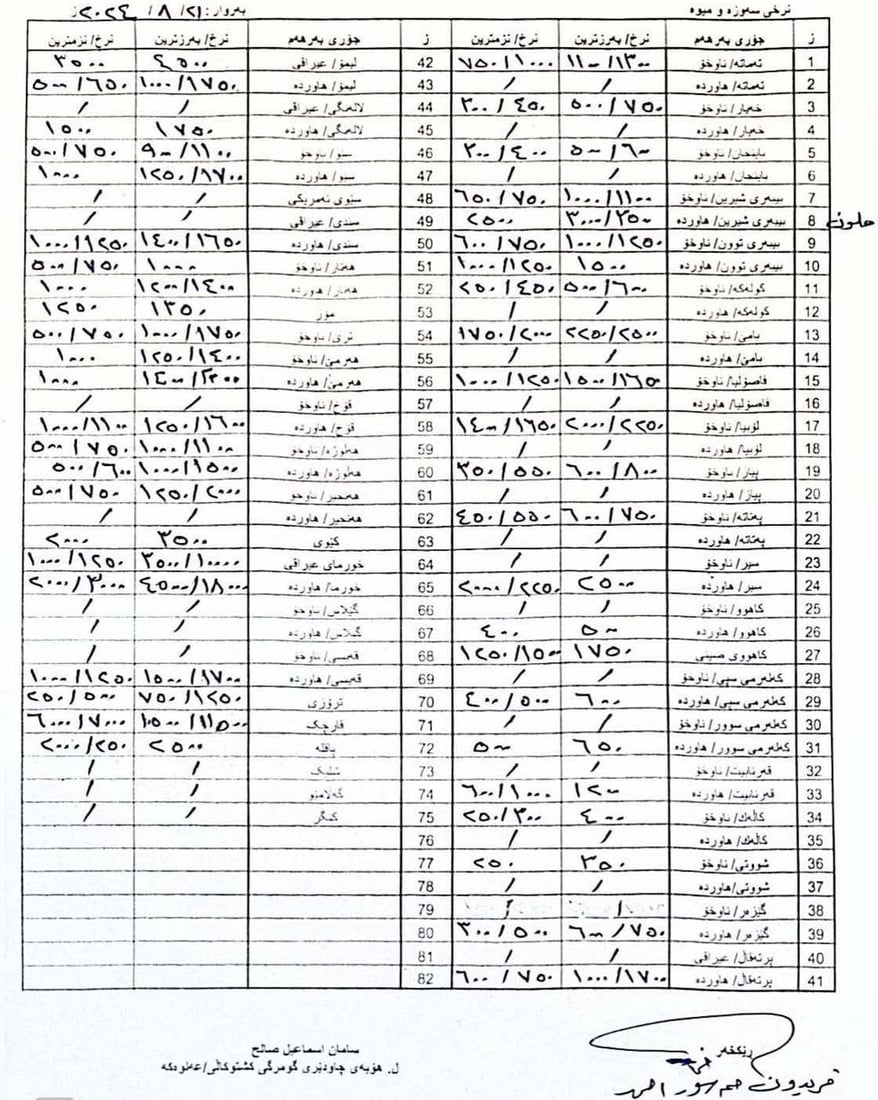 نرخی سەوزە و میوە
بەروار: ٢١ / ٨ / ٢٠٢٤ز
ز جۆری بەرهەم نرخ/ بەرزترین نرخ/ نزمترین ز جۆری بەرهەم نرخ/ بەرزترین نرخ/ نزمترین
1 تەماتە/ ناوخۆ ١١٠٠/١٣٠٠ ٧٥٠/١٠٠٠ 42 لیمۆ/ عیراقی ٤٥٠٠ ٣٥٠٠
2 تەماتە/ هاوردە / / 43 لیمۆ/ هاوردە ١٠٠٠/١٧٥٠ ٥٠٠/٦٥٠
3 خەیار/ ناوخۆ ٥٠٠/٧٥٠ ٣٠٠/٤٥٠ 44 لالەنگی/ عیراقی / /
4 خەیار/ هاوردە / / 45 لالەنگی/ هاوردە ١٧٥٠ ١٥٠٠
5 باینجان/ ناوخۆ ٥٠٠/٦٠٠ ٣٠٠/٤٠٠ 46 سێو/ ناوخۆ ٩٠٠/١١٠٠ ٥٠٠/٧٥٠
6 باینجان/ هاوردە / / 47 سێو/ هاوردە ١٢٥٠/١٧٠٠ ١٠٠٠
7 بیبەری شیرین/ ناوخۆ ١٠٠٠/١١٠٠ ٦٥٠/٧٥٠ 48 سێوی ئەمریکی / /
هلون 8 بیبەری شیرین/ هاوردە ٣٠٠٠/٣٥٠٠ ٢٥٠٠ 49 سندی/ عیراقی / /
9 بیبەری توون/ ناوخۆ ١٠٠٠/١٢٥٠ ٦٠٠/٧٥٠ 50 سندی/ هاوردە ١٤٠٠/١٦٥٠ ١٠٠٠/١٢٥٠
10 بیبەری توون/ هاوردە ١٥٠٠ ١٠٠٠/١٢٥٠ 51 هەنار/ ناوخۆ ١٠٠٠ ٥٠٠/٧٥٠
11 کولەکە/ ناوخۆ ٥٠٠/٦٠٠ ٢٥٠/٤٥٠ 52 هەنار/ هاوردە ١٢٠٠/١٤٠٠ ١٠٠٠
12 کولەکە/ هاوردە / / 53 مۆز ١٣٥٠ ١٢٥٠
13 بامێ/ ناوخۆ ٢٢٥٠/٢٥٠٠ ١٧٥٠/٢٠٠٠ 54 ترێ/ ناوخۆ ١٠٠٠/١٧٥٠ ٥٠٠/٧٥٠
14 بامێ/ هاوردە / / 55 هەرمێ/ ناوخۆ ١٢٥٠/١٤٠٠ ١٠٠٠
15 فاصۆلیا/ ناوخۆ ١٥٠٠/١٦٥٠ ١٠٠٠/١٢٥٠ 56 هەرمێ/ هاوردە ١٠٠٠
16 فاصۆلیا/ هاوردە / / 57 قۆخ/ ناوخۆ / /
17 لۆبیا/ ناوخۆ ٢٠٠٠/٢٢٥٠ ١٤٠٠/١٦٥٠ 58 قۆخ/ هاوردە ١٢٥٠/١٦٠٠ ١٠٠٠/١١٠٠
18 لۆبیا/ هاوردە / / 59 هەلوژە/ ناوخۆ ١٠٠٠/١١٠٠ ٥٠٠/٧٥٠
19 پیاز/ ناوخۆ ٦٠٠/٨٠٠ ٣٥٠/٥٥٠ 60 هەلوژە/ هاوردە ١٠٠٠/١٥٠٠ ٥٠٠/٦٠٠
20 پیاز/ هاوردە / / 61 هەنجیر/ ناوخۆ ١٢٥٠/٢٠٠٠ ٥٠٠/٧٥٠
21 پەتاتە/ ناوخۆ ٦٠٠/٧٥٠ ٤٥٠/٥٥٠ 62 هەنجیر/ هاوردە / /
22 پەتاتە/ هاوردە / / 63 کێوی ٣٥٠٠ ٢٠٠٠
23 سیر/ ناوخۆ / / 64 خورمای عیراقی ٣٥٠٠/١٠٠٠٠ ١٠٠٠/١٢٥٠
24 سیر/ هاوردە ٢٥٠٠ ٢٠٠٠/٢٢٥٠ 65 خورما/ هاوردە ٤٥٠٠/١٨٠٠٠ ٢٠٠٠/٣٠٠٠
25 کاهوو/ ناوخۆ / / 66 گێلاس/ ناوخۆ / /
26 کاهوو/ هاوردە ٥٠٠ ٤٠٠ 67 گێلاس/ هاوردە / /
27 کاهووی صینی ١٧٥٠ ١٢٥٠/١٥٠٠ 68 قەیسی/ ناوخۆ / /
28 کەلەرمی سپی/ ناوخۆ / / 69 قەیسی/ هاوردە ١٥٠٠/١٧٠٠ ١٠٠٠/١٢٥٠
29 کەلەرمی سپی/ هاوردە ٦٠٠ ٤٠٠/٥٠٠ 70 ترۆزی ٧٥٠/١٢٥٠ ٢٥٠/٥٠٠
30 کەلەرمی سوور/ ناوخۆ / / 71 قارچک ١٠٥٠٠/١١٥٠٠ ٦٠٠٠/٧٠٠٠
31 کەلەرمی سوور/ هاوردە ٦٥٠ ٥٠٠ 72 پاقلە ٢٥٠٠
32 قەرنابیت/ ناوخۆ / / 73 شلیک / /
33 قەرنابیت/ هاوردە ١٢٠٠ ٦٠٠/١٠٠٠ 74 / /
34 کاڵەك/ ناوخۆ ٤٠٠ ٢٥٠/٣٠٠ 75 کنگر / /
35 کاڵەك/ هاوردە / / 76
36 شووتی/ ناوخۆ ٣٥٠ ٢٥٠ 77
37 شووتی/هاوردە / / 78
38 گێزەر/ ناوخۆ / / 79
39 گێزەر/ هاوردە ٦٠٠/٧٥٠ ٣٠٠/٥٠٠ 80
40 پرتەقاڵ/ عیراقی / / 81
41 پرتەقاڵ/ هاوردە ١٠٠٠/١٧٠٠ ٦٠٠/٧٥٠ 82
سامان اسماعیل صالح
ل. هۆبەی چاودێری گومرگی کشتوکاڵی/عەلوەکە
ڕێکخەر
فریدون حمە سور احمد